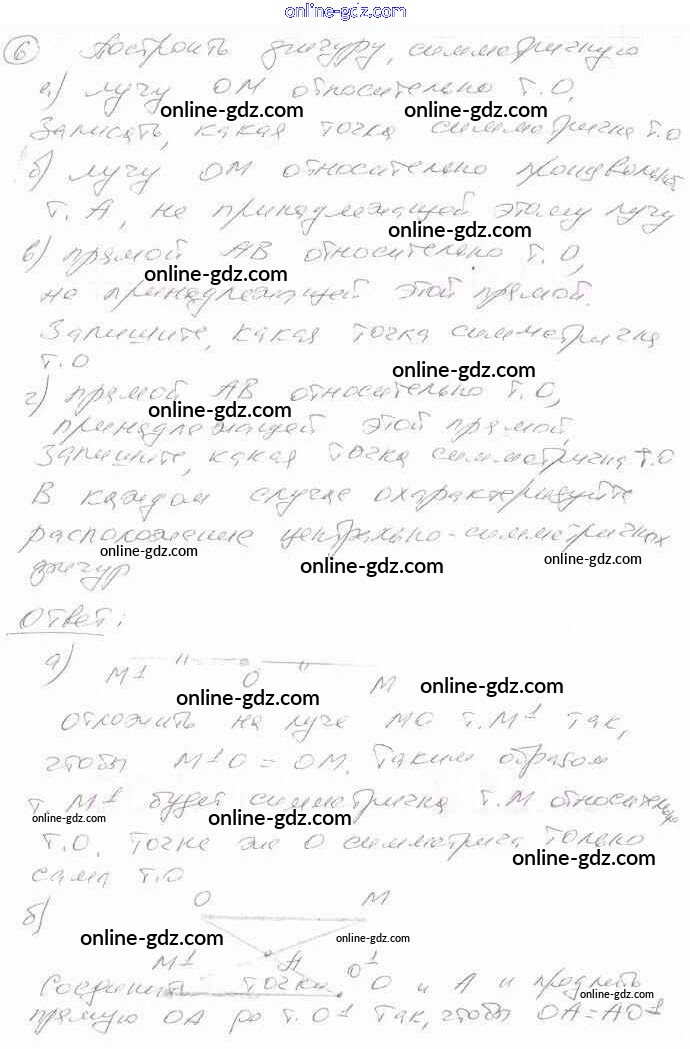 online-gdz.com
6 Построить фигуру, симметричную
а) лучу ОМ относительно т.О,
online-gdz.com online-gdz.com
Записать, какая точка симметрична т.О
б) лучу ОМ относительно произвольной
т.А, не принадлежащей этому лучу
online-gdz.com
в) прямой АВ относительно т.О,
online-gdz.com
не принадлежащей этой прямой.
Запишите, какая точка симметрична
т.О
online-gdz.com
г) прямой АВ относительно т.О,
online-gdz.com
принадлежащей этой прямой,
Запишите, какая точка симметрична т.О
В каждом случае охарактеризуйте
расположение центрально-симметричных
online-gdz.com online-gdz.com online-gdz.com
фигур
Ответ:
а)
М1 О М
online-gdz.com online-gdz.com
отложить на луче МО т.М1 так,
чтобы М1О = ОМ. Таким образом
т.М1 будет симметрична т.М относительно
online-gdz.com online-gdz.com
т.О. Точке же О симметрична только
online-gdz.com
сама т.О
б) О М
online-gdz.com online-gdz.com
М1 А О1
Соединить точки О и А и продлить
online-gdz.com
прямую ОА до т.О1 так, чтобы ОА=АО1